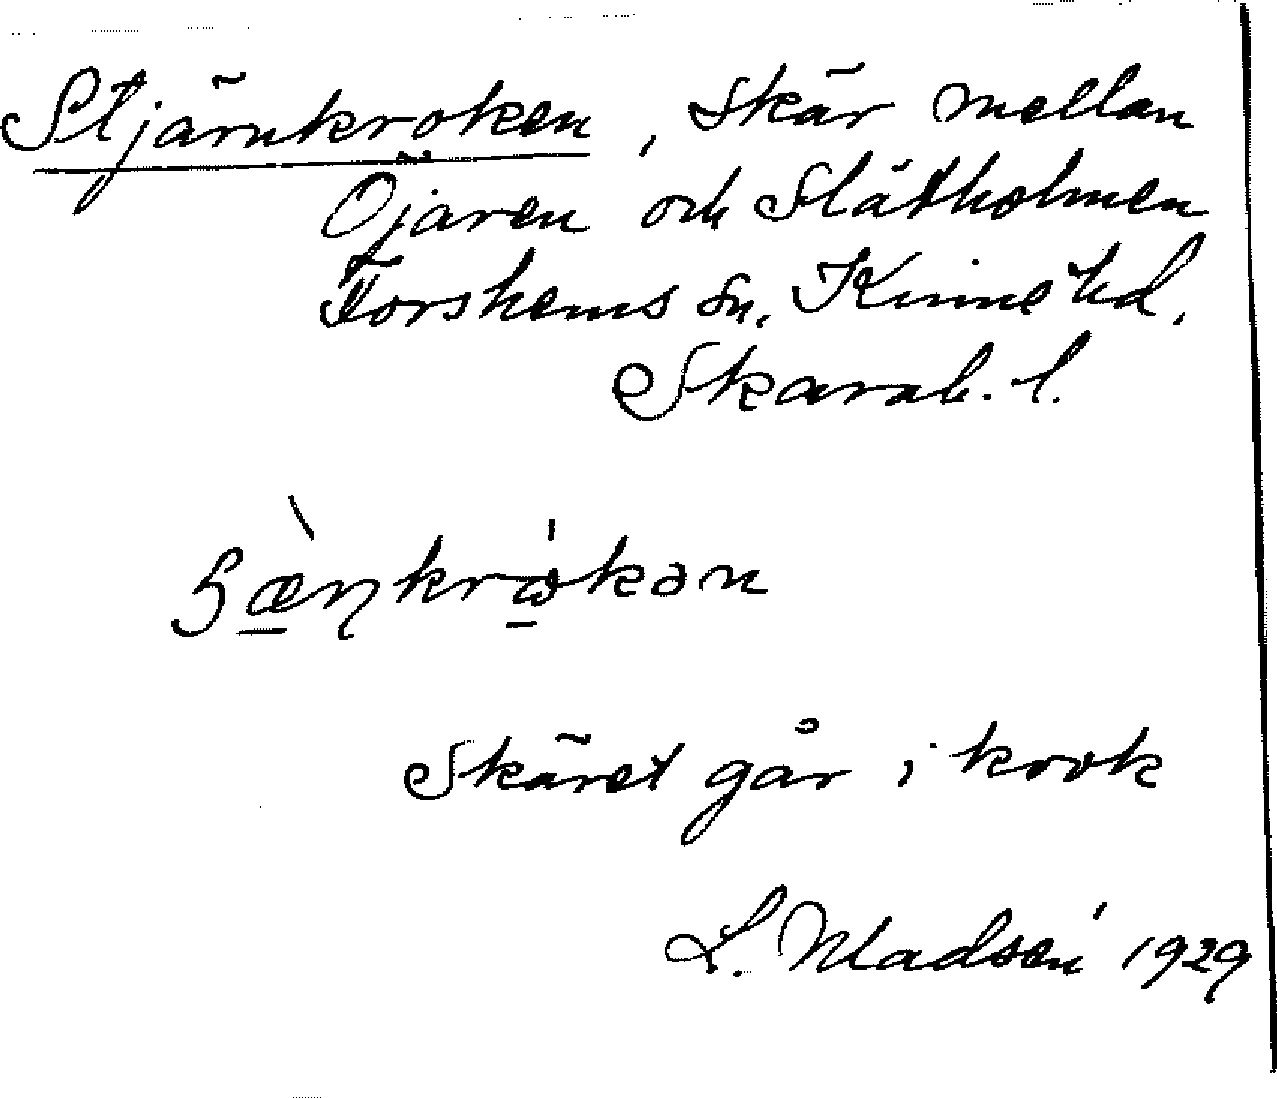 Stjärnkroken, Skär mellan
Öjaren och Slätholmen
Forshems sn. Kinne hd.
Skarab. l.
Skäret går i krok
L. Madsén 1929